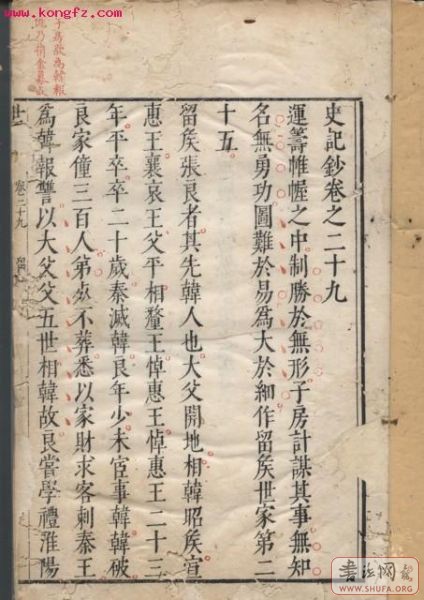 www.kongfz.com
史記鈔卷之二十九
運籌帷幄之中制勝於無形子房計謀其事無知
名無勇功圖難於易爲大於細作留矦世家第二
十五
留矦張良者其先韓人也大父開地相韓昭矦宣
惠王襄哀王父平相釐王悼惠王悼惠王二十三
年平卒卒二十歲秦滅韓良年少未宦事韓韓破
良家僮三百人第死不葬悉以家財求客刺秦王
爲韓報讐以大父父五世相韓故良嘗學禮淮陽
卷二十九
书法网
WWW.SHUFA.ORG